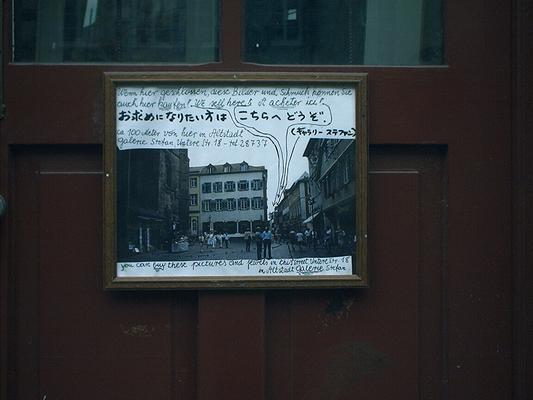 Wenn hier geschlossen, diese Bilder und Schmuck können sie
auch hier kaufen! We sell here & A acheter ici!
お求めになりたい方は こちらへ どうぞ.
(ギャラリー ステファン)
ca 100 Meter von hier in Altstadt
Galerie Stefan, Untere Str. 18 - tel. 28737
you can buy these pictures and jewels in Untere Str. 18
in Altstadt Galerie Stefan